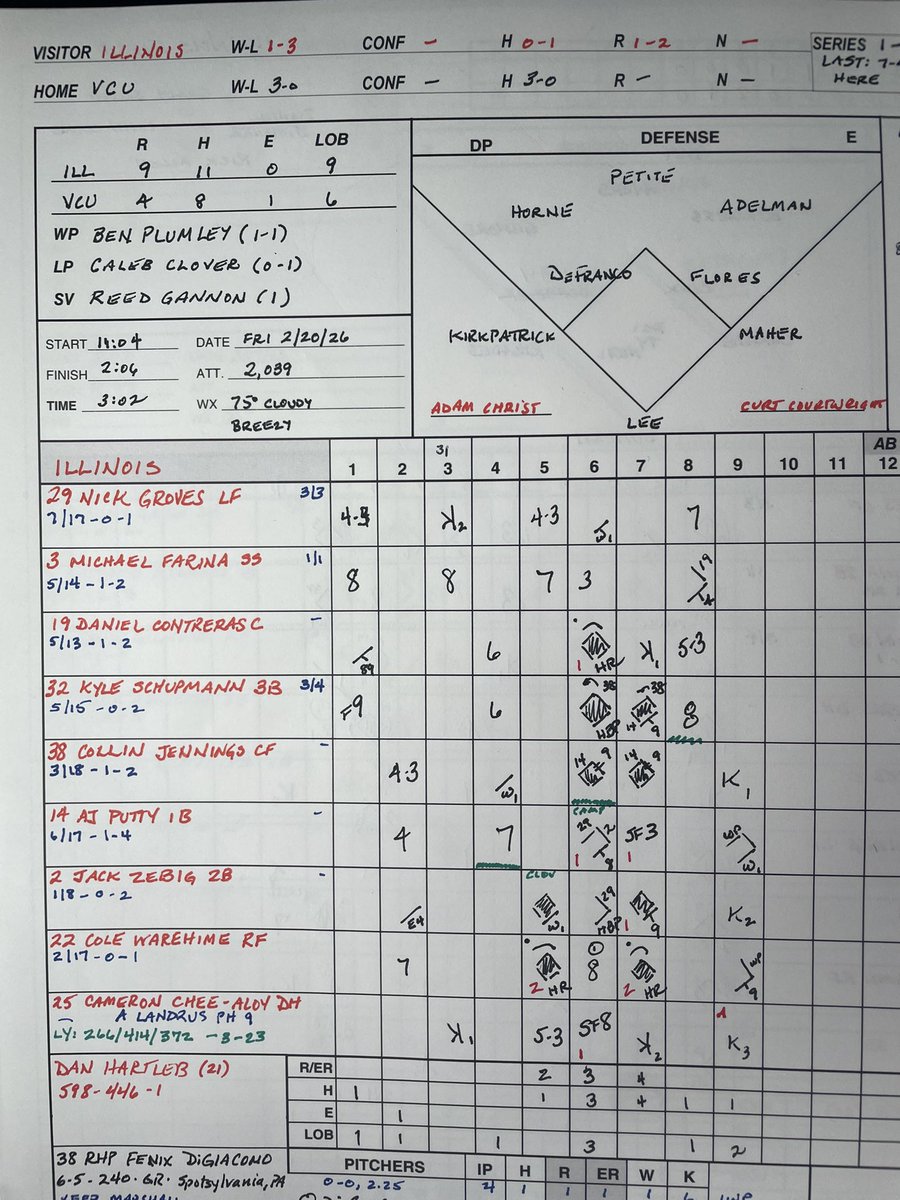 VISITOR ILLINOIS W-L 1-3 CONF - H 0-1 R 1-2 N - SERIES 1-
LAST: 7-
HERE
HOME VCU W-L 3-0 CONF - H 3-0 R - N -
R H E LOB
ILL 9 11 0 9
VCU 4 8 1 6
WP BEN PLUMLEY (1-1)
LP CALEB CLOVER (0-1)
SV REED GANNON (1)
START 11:04 DATE FRI 2/20/26
FINISH 2:06 ATT. 2,039
TIME 3:02 WX 75° CLOUDY
BREEZY
DP DEFENSE E
PETITE
HORNE ADELMAN
DEFRANCO FLORES
KIRKPATRICK MAHER
ADAM CHRIST CURT COURTWRIGHT
LEE
31 AB
ILLINOIS 1 2 3 4 5 6 7 8 9 10 11 12
29 NICK GROVES LF 3/3
7/17-0-1
4-3 K2 4-3 W1 7
3 MICHAEL FARINA SS 1/1
5/14-1-2
8 8 7 3 19
19 DANIEL CONTRERAS C -
5/13-1-2
89 6 1 HR K1 5-3
32 KYLE SCHUPMANN 3B 3/4
5/15-0-2
F9 6 38 HBP 38 14 9 8
38 COLLIN JENNINGS CF -
3/18-1-2
4-3 W1 14 9 14 9 K1
CAMP
14 AJ PUTTY 1B -
6/17-1-4
4 7 29 2 1 8 SF3 1 WP W1
CLOV
2 JACK ZEBIG 2B -
1/8-0-2
E4 W1 29 HBP 1 9 K2
22 COLE WAREHIME RF
2/17-0-1
7 2 HR 1 8 2 HR WP 9
25 CAMERON CHEE-ALOY DH
A LANDRUS PH 9
LY: 266/414/372 -3-23
K1 5-3 SF8 1 K2 A K3
DAN HARTLEB (21)
598-446-1
R/ER 2 3 4
H 1 1 3 4 1 1
E 1
LOB 1 1 1 3 1 2
38 RHP FENIX DIGIACOMO
6-5-240-GR. Spotsylvania, PA
PITCHERS IP H R ER W K
0-0, 2.25 4 1 1 1 1